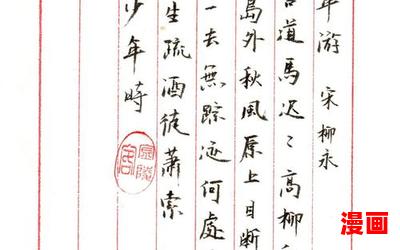 年游 宋柳永
古道馬遲遲高柳
島外秋風原上目斷
一去無踪迹何處
生疏酒徒蕭索
少年時
漫画